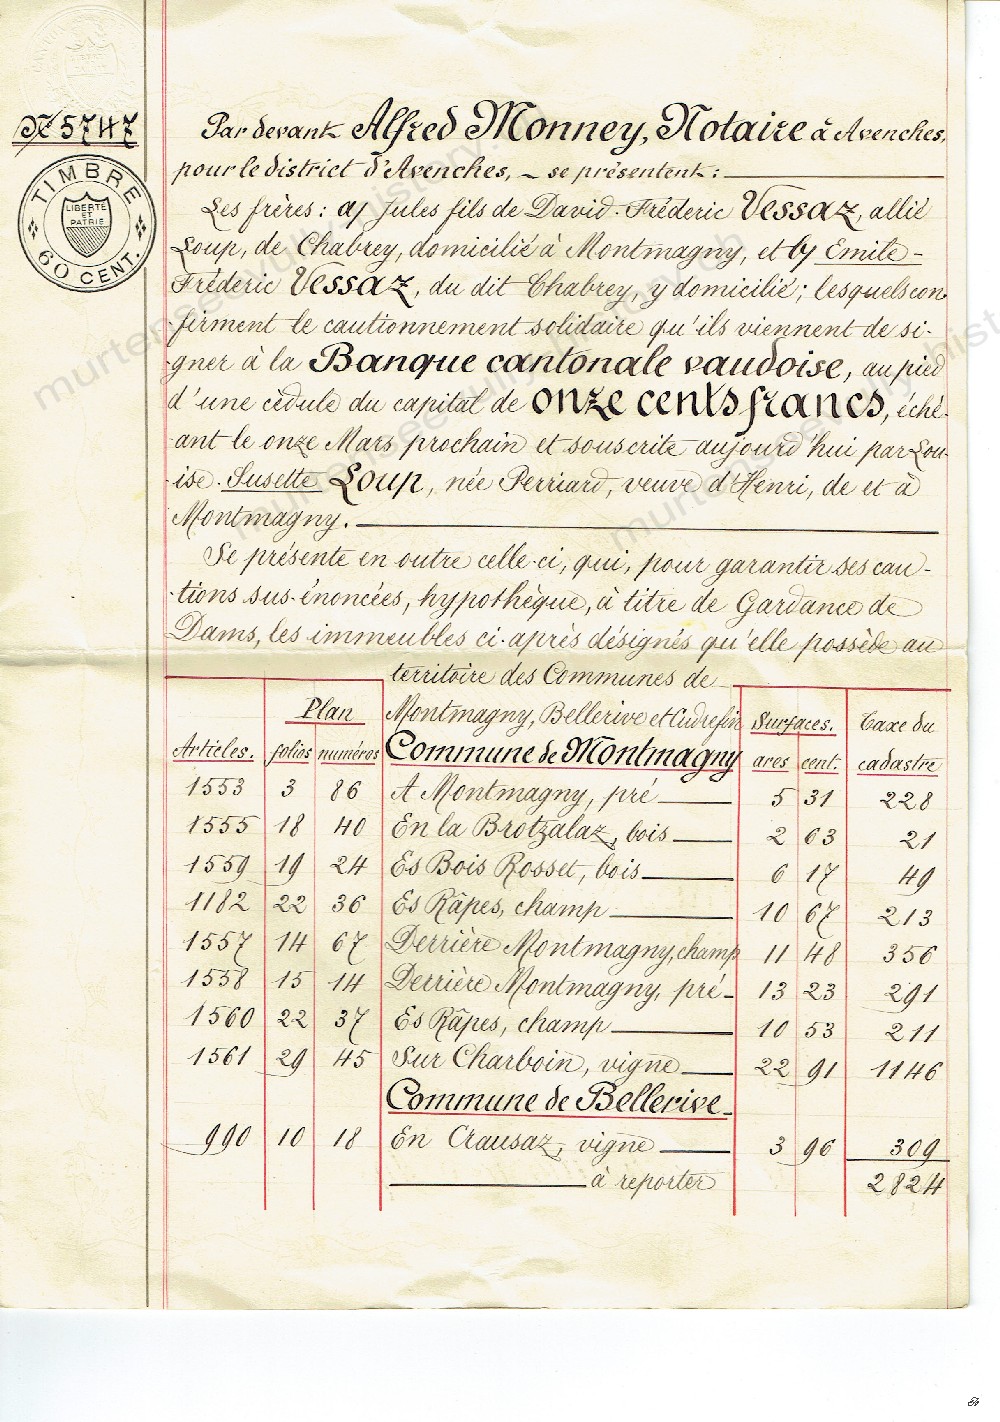 № 5747
TIMBRE
LIBERTÉ
ET
PATRIE
60 CENT.
Par devant Alfred Monney, Notaire à Avenches,
pour le district d'Avenches, – se présentent:
Les frères: a/ Jules fils de David-Fréderic Vessaz, allié
Loup, de Chabrey, domicilié à Montmagny, et b/ Emile-
Fréderic Vessaz, du dit Chabrey, y domicilié; lesquels con-
firment le cautionnement solidaire qu'ils viennent de si-
gner à la Banque cantonale vaudoise, au pied
d'une cédule du capital de onze cents francs, éché-
ant le onze Mars prochain et souscrite aujourd'hui par Lou-
ise-Susette Loup, née Perriard, veuve d'Henri, de et à
Montmagny.
Se présente en outre celle-ci, qui, pour garantir ses cau-
tions sus-énoncées, hypothèque, à titre de Gardance de
Dams, les immeubles ci-après désignés qu'elle possède au
territoire des Communes de
Montmagny, Bellerive et Cudrefin
Articles. Plan folios numéros Commune de Montmagny Surfaces. ares cent. Taxe du cadastre
1553 3 86 A Montmagny, pré 5 31 228
1555 18 40 En la Brotzalaz, bois 2 63 21
1559 19 24 Es Bois Rosset, bois 6 17 49
1182 22 36 Es Râpes, champ 10 67 213
1557 14 67 Derrière Montmagny, champ 11 48 356
1558 15 14 Derrière Montmagny, pré- 13 23 291
1560 22 37 Es Râpes, champ 10 53 211
1561 29 45 Sur Charboin, vigne 22 91 1146
Commune de Bellerive
990 10 18 En Crausaz, vigne 3 96 309
à reporter 2824